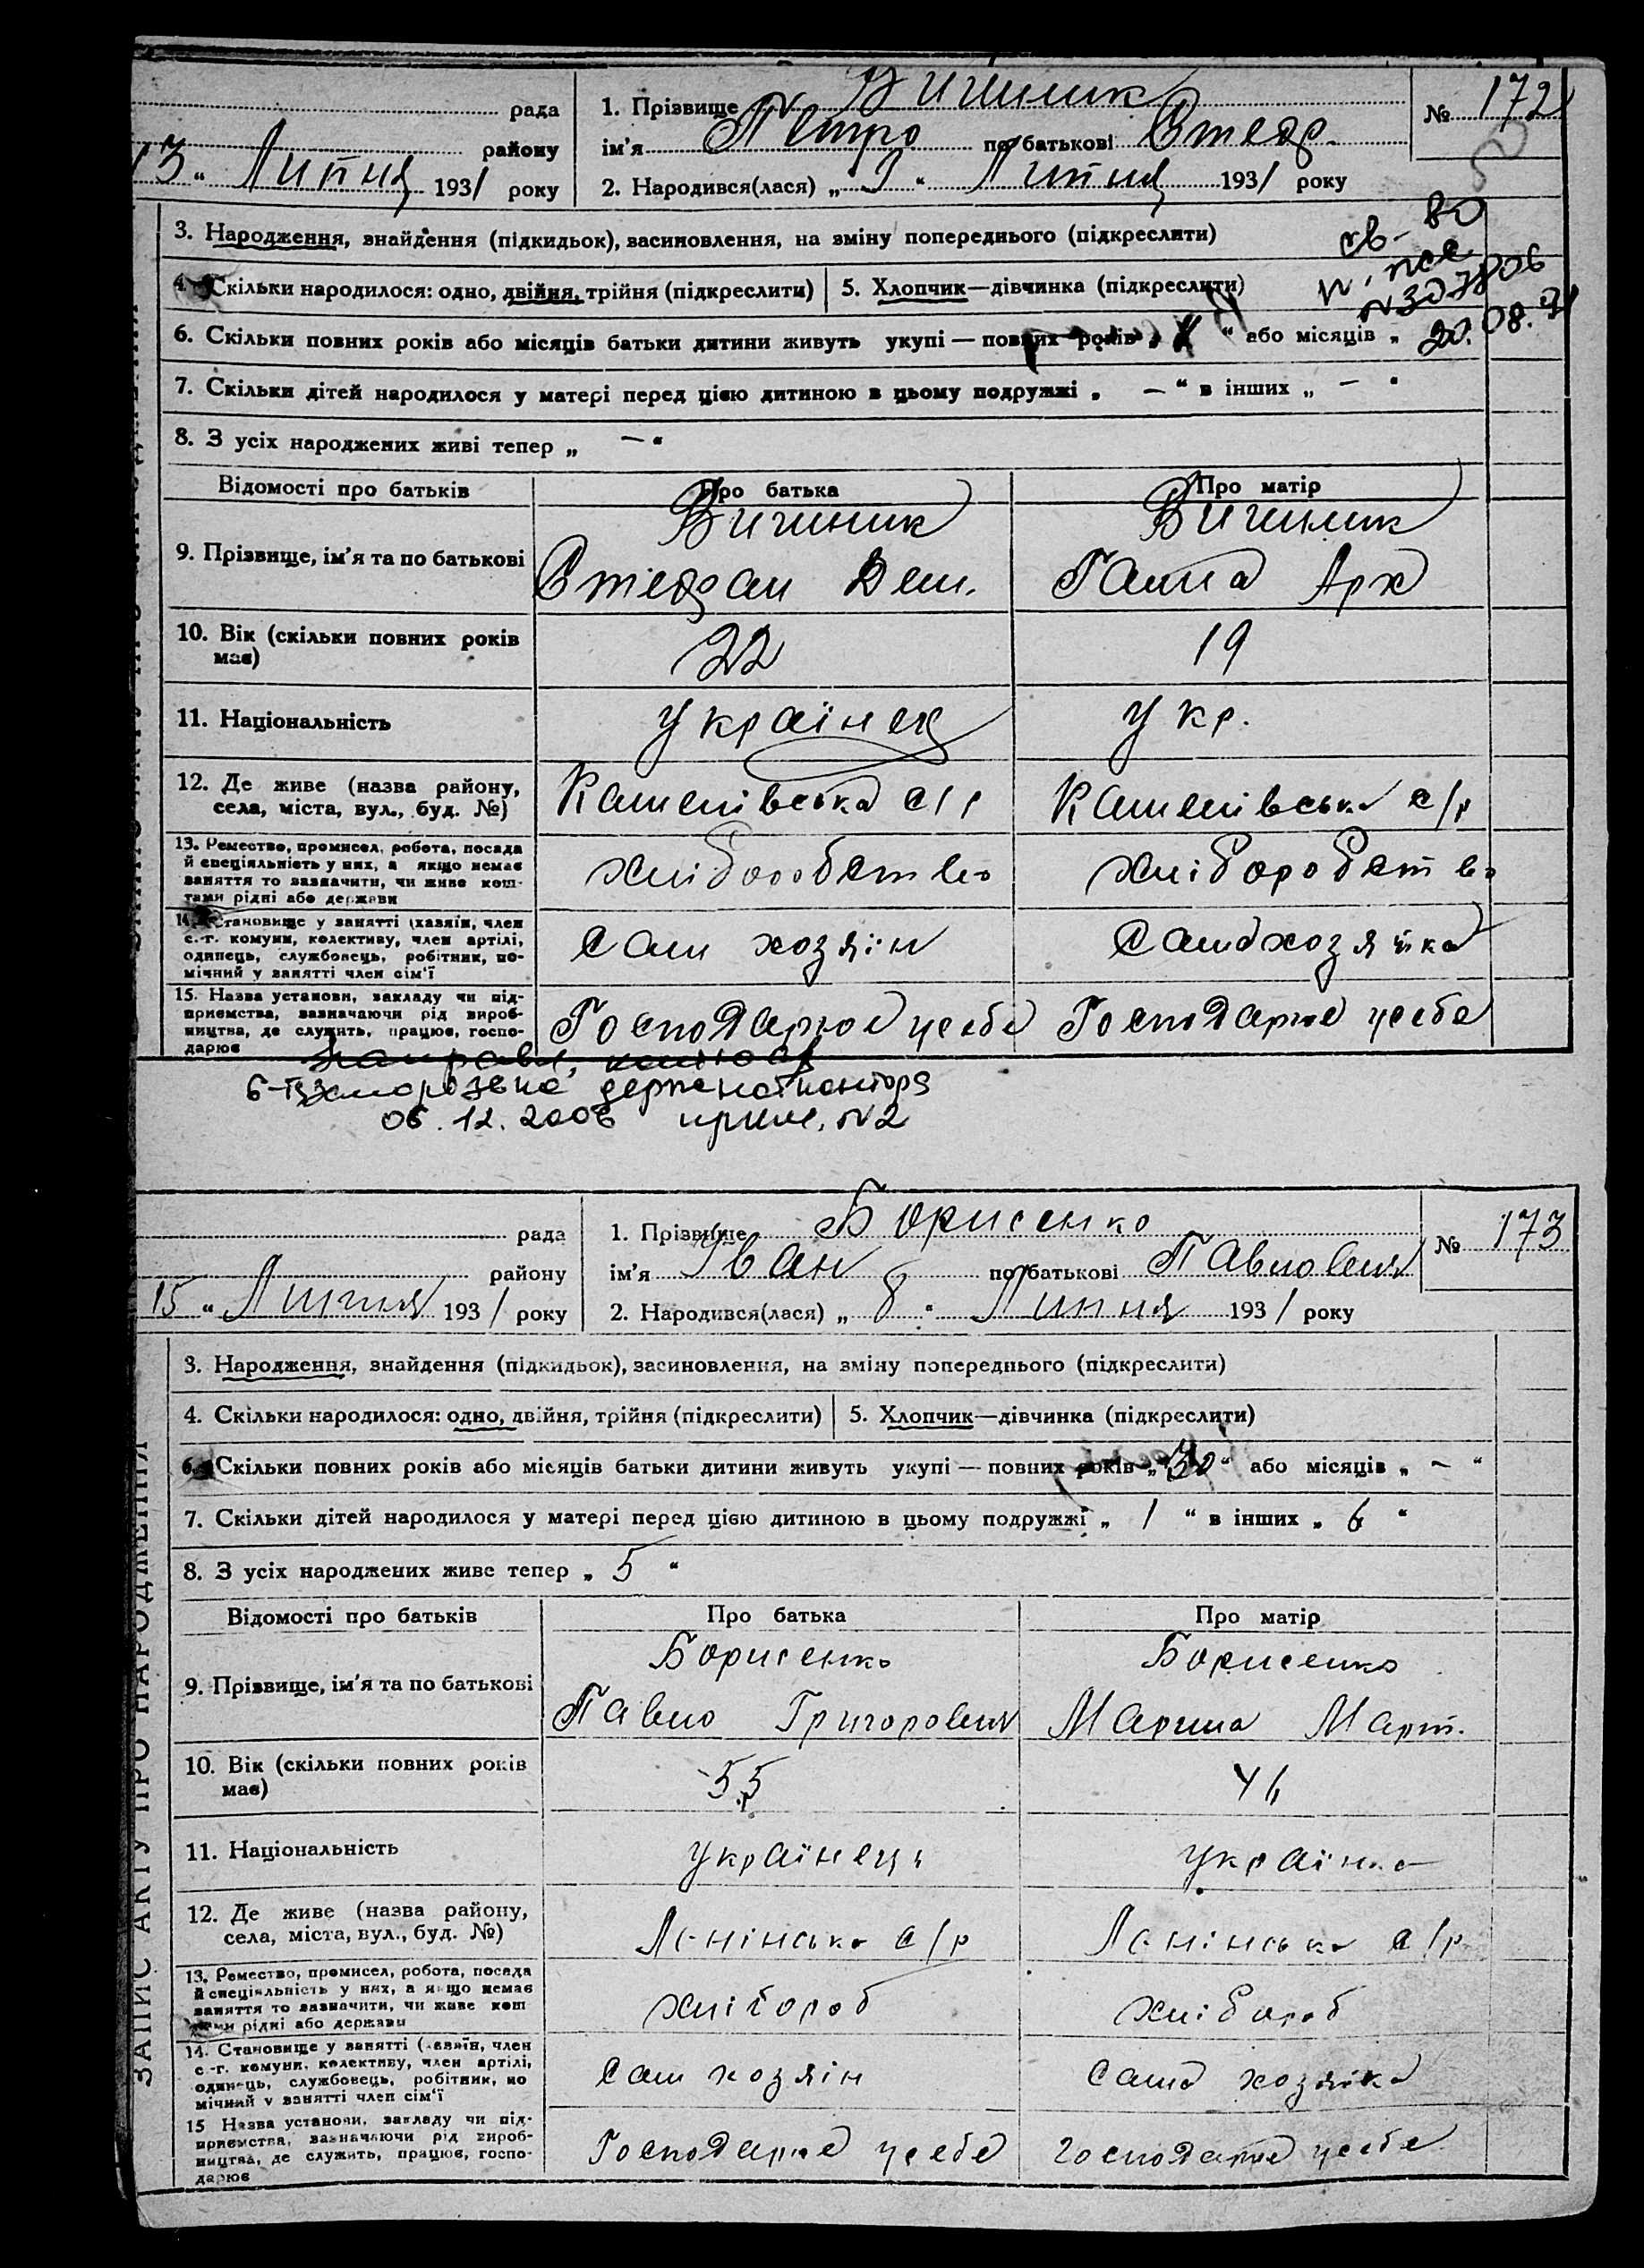 рада
1. Прізвище Вишник
№ 172
району
ім'я Петро по батькові Стеф.
13 " Липня 1931 року
2. Народився(лася) „ " Липня 1931 року
3. Народження, знайдення (підкидьок), засиновлення, на зміну попереднього (підкреслити)
4. Скільки народилося: одно, двійня, трійня (підкреслити)
5. Хлопчик—дівчинка (підкреслити)
6. Скільки повних років або місяців батьки дитини живуть укупі — повних років „ " або місяців „
20.08.
7. Скільки дітей народилося у матері перед цією дитиною в цьому подружжі „ — " в інших „ — "
8. З усіх народжених живі тепер „ — "
Відомості про батьків
Про батька
Про матір
9. Прізвище, ім'я та по батькові
Вишник
Стефан Дем.
Вишник
Ганна Арх
10. Вік (скільки повних років має)
22
19
11. Національність
Українец
Укр.
12. Де живе (назва району,
села, міста, вул., буд. №)
Каменівська с/р
Каменівська с/р
13. Ремество, промисел, робота, посада
й спеціяльність у них, а якщо немає
заняття то зазначити, чи живе кош-
тами рідні або держави
хліборобство
хліборобство
14. Становище у занятті (хазяїн, член
с.-г. комуни, колективу, член артілі,
одинець, службовець, робітник, по-
мічний у занятті член сім'ї
сам хозяїн
сама хозяйка
15. Назва установи, закладу чи під-
приємства, зазначаючи рід вироб-
ництва, де служить, працює, госпо-
дарює
Господарює у себе
Господарює у себе
держнотконтора
06.12.2006 прим. №2
рада
1. Прізвище Борисенко
№ 173
району
ім'я Іван по батькові Павлович
15 " Липня 1931 року
2. Народився(лася) „ 8 " Липня 1931 року
3. Народження, знайдення (підкидьок), засиновлення, на зміну попереднього (підкреслити)
4. Скільки народилося: одно, двійня, трійня (підкреслити)
5. Хлопчик—дівчинка (підкреслити)
6. Скільки повних років або місяців батьки дитини живуть укупі — повних років „ 30 " або місяців „ — "
7. Скільки дітей народилося у матері перед цією дитиною в цьому подружжі „ 1 " в інших „ 6 "
8. З усіх народжених живе тепер „ 5 "
Відомості про батьків
Про батька
Про матір
9. Прізвище, ім'я та по батькові
Борисенко
Павло Григорович
Борисенко
Марина Март.
10. Вік (скільки повних років
має)
55
11. Національність
Українець
Українка
12. Де живе (назва району,
села, міста, вул., буд. №)
Ленінська с/р
Ленінська с/р
13. Ремество, промисел, робота, посада
й спеціяльність у них, а якщо немає
заняття то зазначити, чи живе кош
тами рідні або держави
хлібороб
хлібороб
14. Становище у занятті (хазяїн, член
с.-г. комуни, колективу, член артілі,
одинець, службовець, робітник, по
мічний у занятті член сім'ї
сам хозяін
сама хозяіка
15 Назва установи, закладу чи під-
приємства, зазначаючи рід вироб-
ництва, де служить, працює, госпо-
дарює
Господарює у себе
Господарює у себе
ЗАПИС АКТУ ПРО НАРОДЖЕННЯ